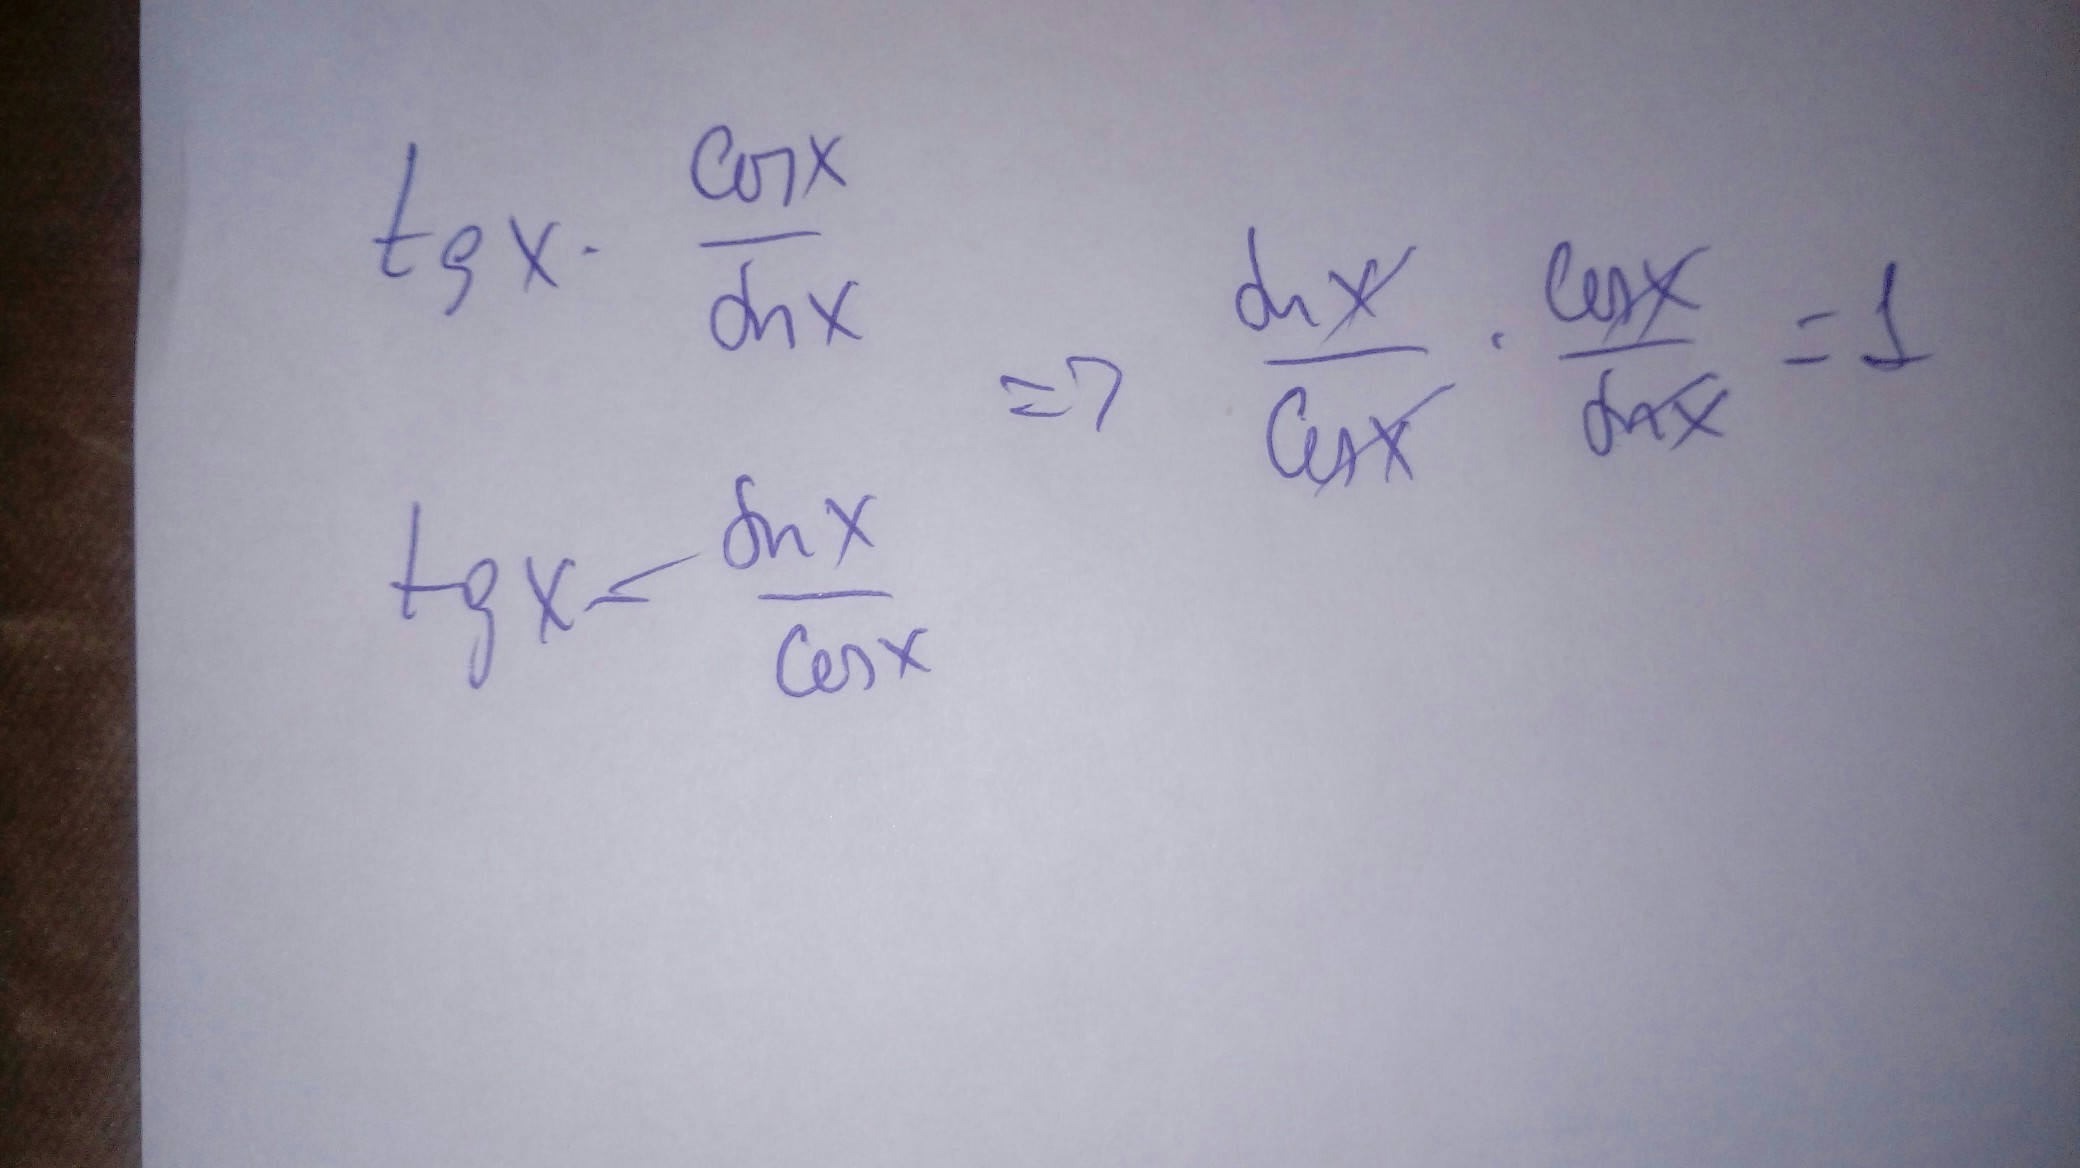 tgx · cosx / sinx
=> sinx / cosx · cosx / sinx = 1
tgx = sinx / cosx